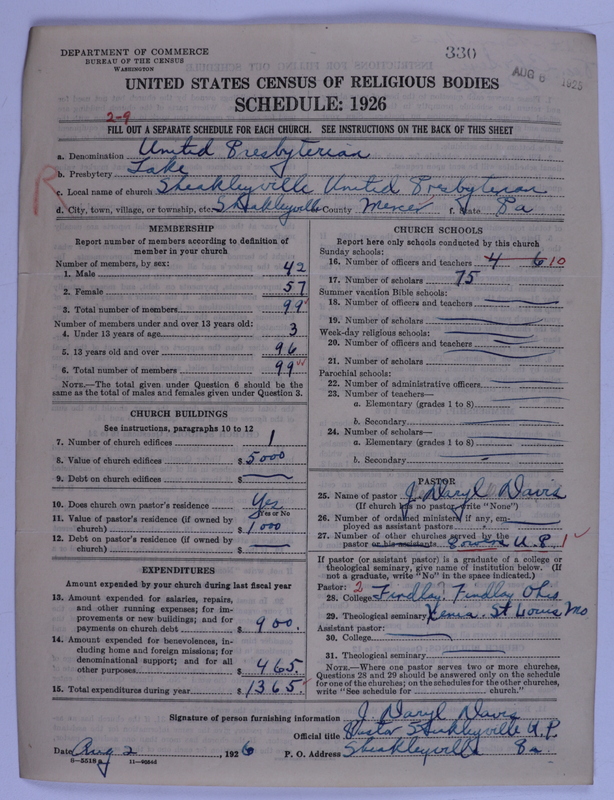 DEPARTMENT OF COMMERCE
BUREAU OF THE CENSUS
WASHINGTON
330
AUG 6 1926
UNITED STATES CENSUS OF RELIGIOUS BODIES
SCHEDULE: 1926
2-9
FILL OUT A SEPARATE SCHEDULE FOR EACH CHURCH. SEE INSTRUCTIONS ON THE BACK OF THIS SHEET
R
a. Denomination United Presbyterian
b. Presbytery Lake
c. Local name of church Sheakleyville United Presbyterian
d. City, town, village, or township, etc. Sheakleyville County Mercer f. State Pa
MEMBERSHIP
Report number of members according to definition of member in your church
Number of members, by sex:
1. Male 42
2. Female 57
3. Total number of members 99
Number of members under and over 13 years old:
4. Under 13 years of age 3
5. 13 years old and over 96
6. Total number of members 99
NOTE.—The total given under Question 6 should be the same as the total of males and females given under Question 3.
CHURCH BUILDINGS
See instructions, paragraphs 10 to 12
7. Number of church edifices 1
8. Value of church edifices $5000
9. Debt on church edifices $
10. Does church own pastor's residence Yes
Yes or No
11. Value of pastor's residence (if owned by church) $1000
12. Debt on pastor's residence (if owned by church) $
EXPENDITURES
Amount expended by your church during last fiscal year
13. Amount expended for salaries, repairs, and other running expenses; for improvements or new buildings; and for payments on church debt $900.
14. Amount expended for benevolences, including home and foreign missions; for denominational support; and for all other purposes $465.
15. Total expenditures during year $1365.
CHURCH SCHOOLS
Report here only schools conducted by this church
Sunday schools:
16. Number of officers and teachers 4 6 10
17. Number of scholars 75
Summer vacation Bible schools:
18. Number of officers and teachers
19. Number of scholars
Week-day religious schools:
20. Number of officers and teachers
21. Number of scholars
Parochial schools:
22. Number of administrative officers
23. Number of teachers—
a. Elementary (grades 1 to 8)
b. Secondary
24. Number of scholars—
a. Elementary (grades 1 to 8)
b. Secondary
PASTOR
25. Name of pastor J. Daryl Davis
(If church has no pastor, write "None")
26. Number of ordained ministers, if any, employed as assistant pastors
27. Number of other churches served by the pastor or his assistants U.P. 1
If pastor (or assistant pastor) is a graduate of a college or theological seminary, give name of institution below. (If not a graduate, write "No" in the space indicated.)
Pastor: 2
28. College Findlay. Findlay Ohio
29. Theological seminary Xenia. St Louis Mo
Assistant pastor:
30. College
31. Theological seminary
NOTE.—Where one pastor serves two or more churches, Questions 28 and 29 should be answered only on the schedule for one of the churches; on the schedules for the other churches, write "See schedule for church."
Signature of person furnishing information J. Daryl Davis
Official title Pastor Sheakleyville U.P.
Date Aug 2, 1926 P. O. Address Sheakleyville Pa.
11—9064d